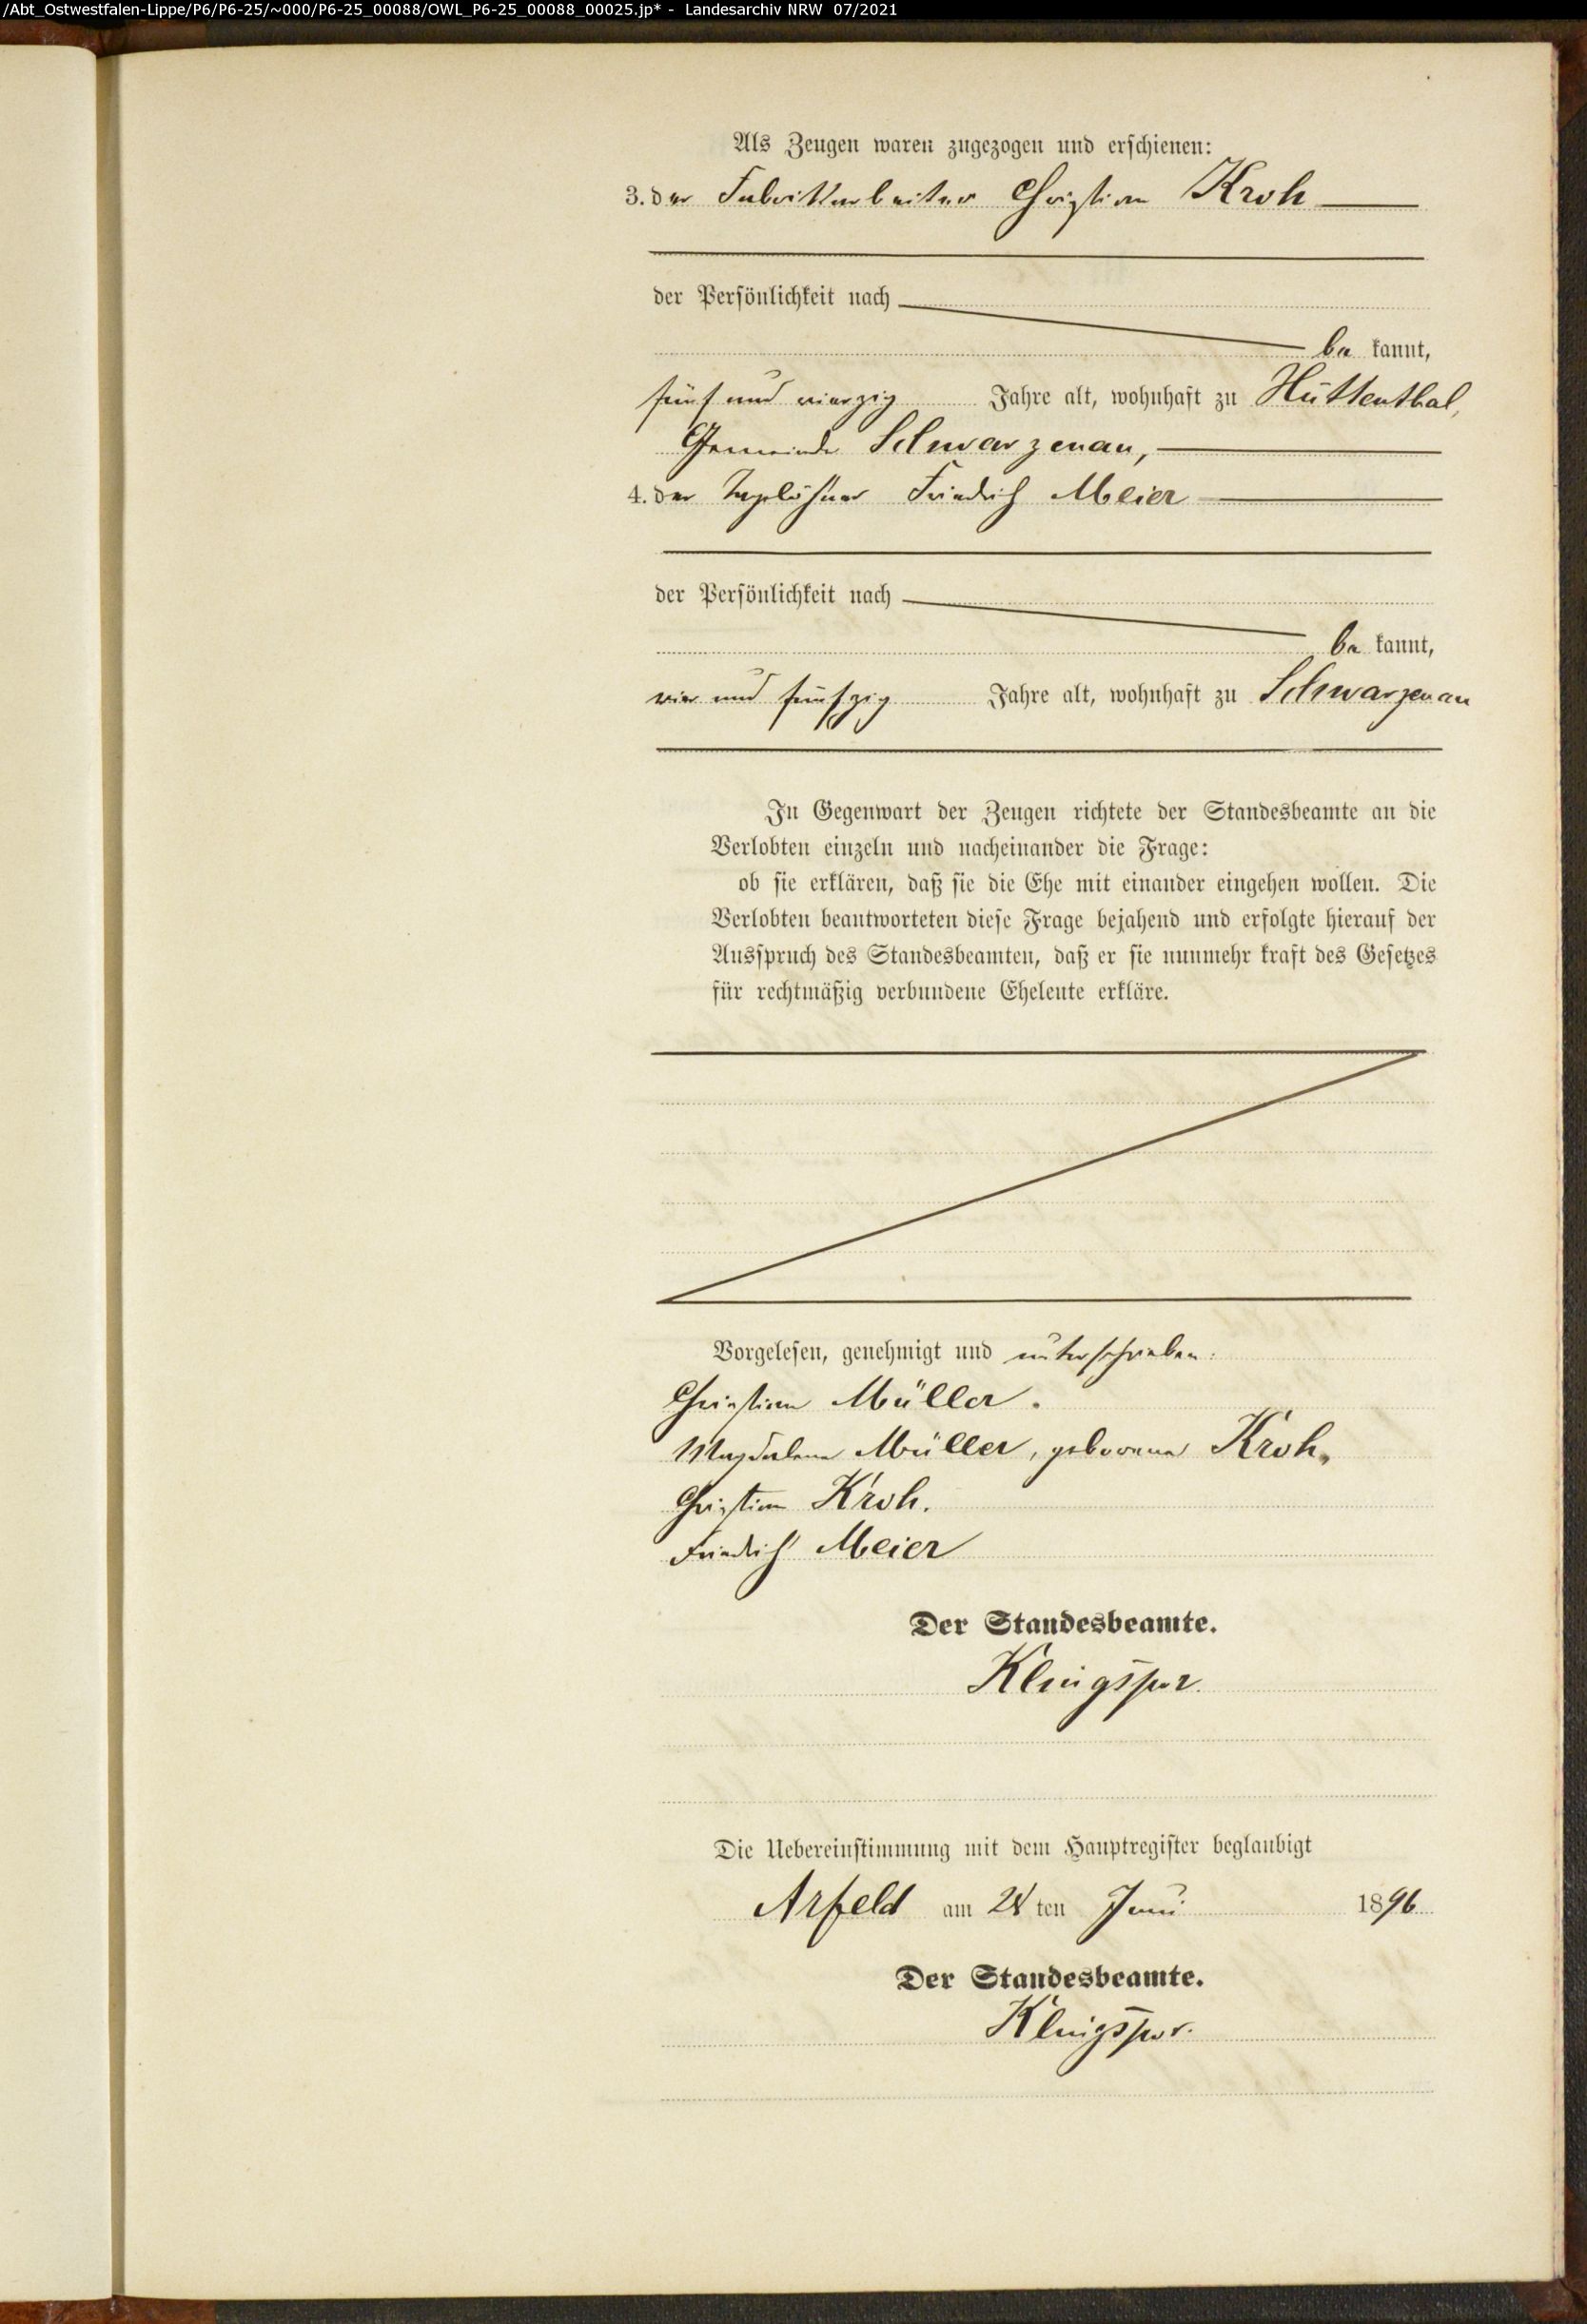 /Abt_Ostwestfalen-Lippe/P6/P6-25/~000/P6-25_00088/OWL_P6-25_00088_00025.jp* - Landesarchiv NRW 07/2021
Als Zeugen waren zugezogen und erschienen:
3. der Fabrikarbeiter Christian Kroh
der Persönlichkeit nach
be kannt,
fünf und vierzig Jahre alt, wohnhaft zu Hüttenthal,
Gemeinde Schwarzenau,
4. der Tagelöhner Friedrich Meier
der Persönlichkeit nach
be kannt,
vier und fünfzig Jahre alt, wohnhaft zu Schwarzenau
In Gegenwart der Zeugen richtete der Standesbeamte an die
Verlobten einzeln und nacheinander die Frage:
ob sie erklären, daß sie die Ehe mit einander eingehen wollen. Die
Verlobten beantworteten diese Frage bejahend und erfolgte hierauf der
Ausspruch des Standesbeamten, daß er sie nunmehr kraft des Gesetzes
für rechtmäßig verbundene Eheleute erkläre.
Vorgelesen, genehmigt und unterschrieben:
Christian Müller.
Magdalene Müller, geborene Kroh,
Christian Kroh.
Friedrich Meier
Der Standesbeamte.
Klingspor.
Die Uebereinstimmung mit dem Hauptregister beglaubigt
Arfeld am ten Juni 1896
Der Standesbeamte.
Klingspor.